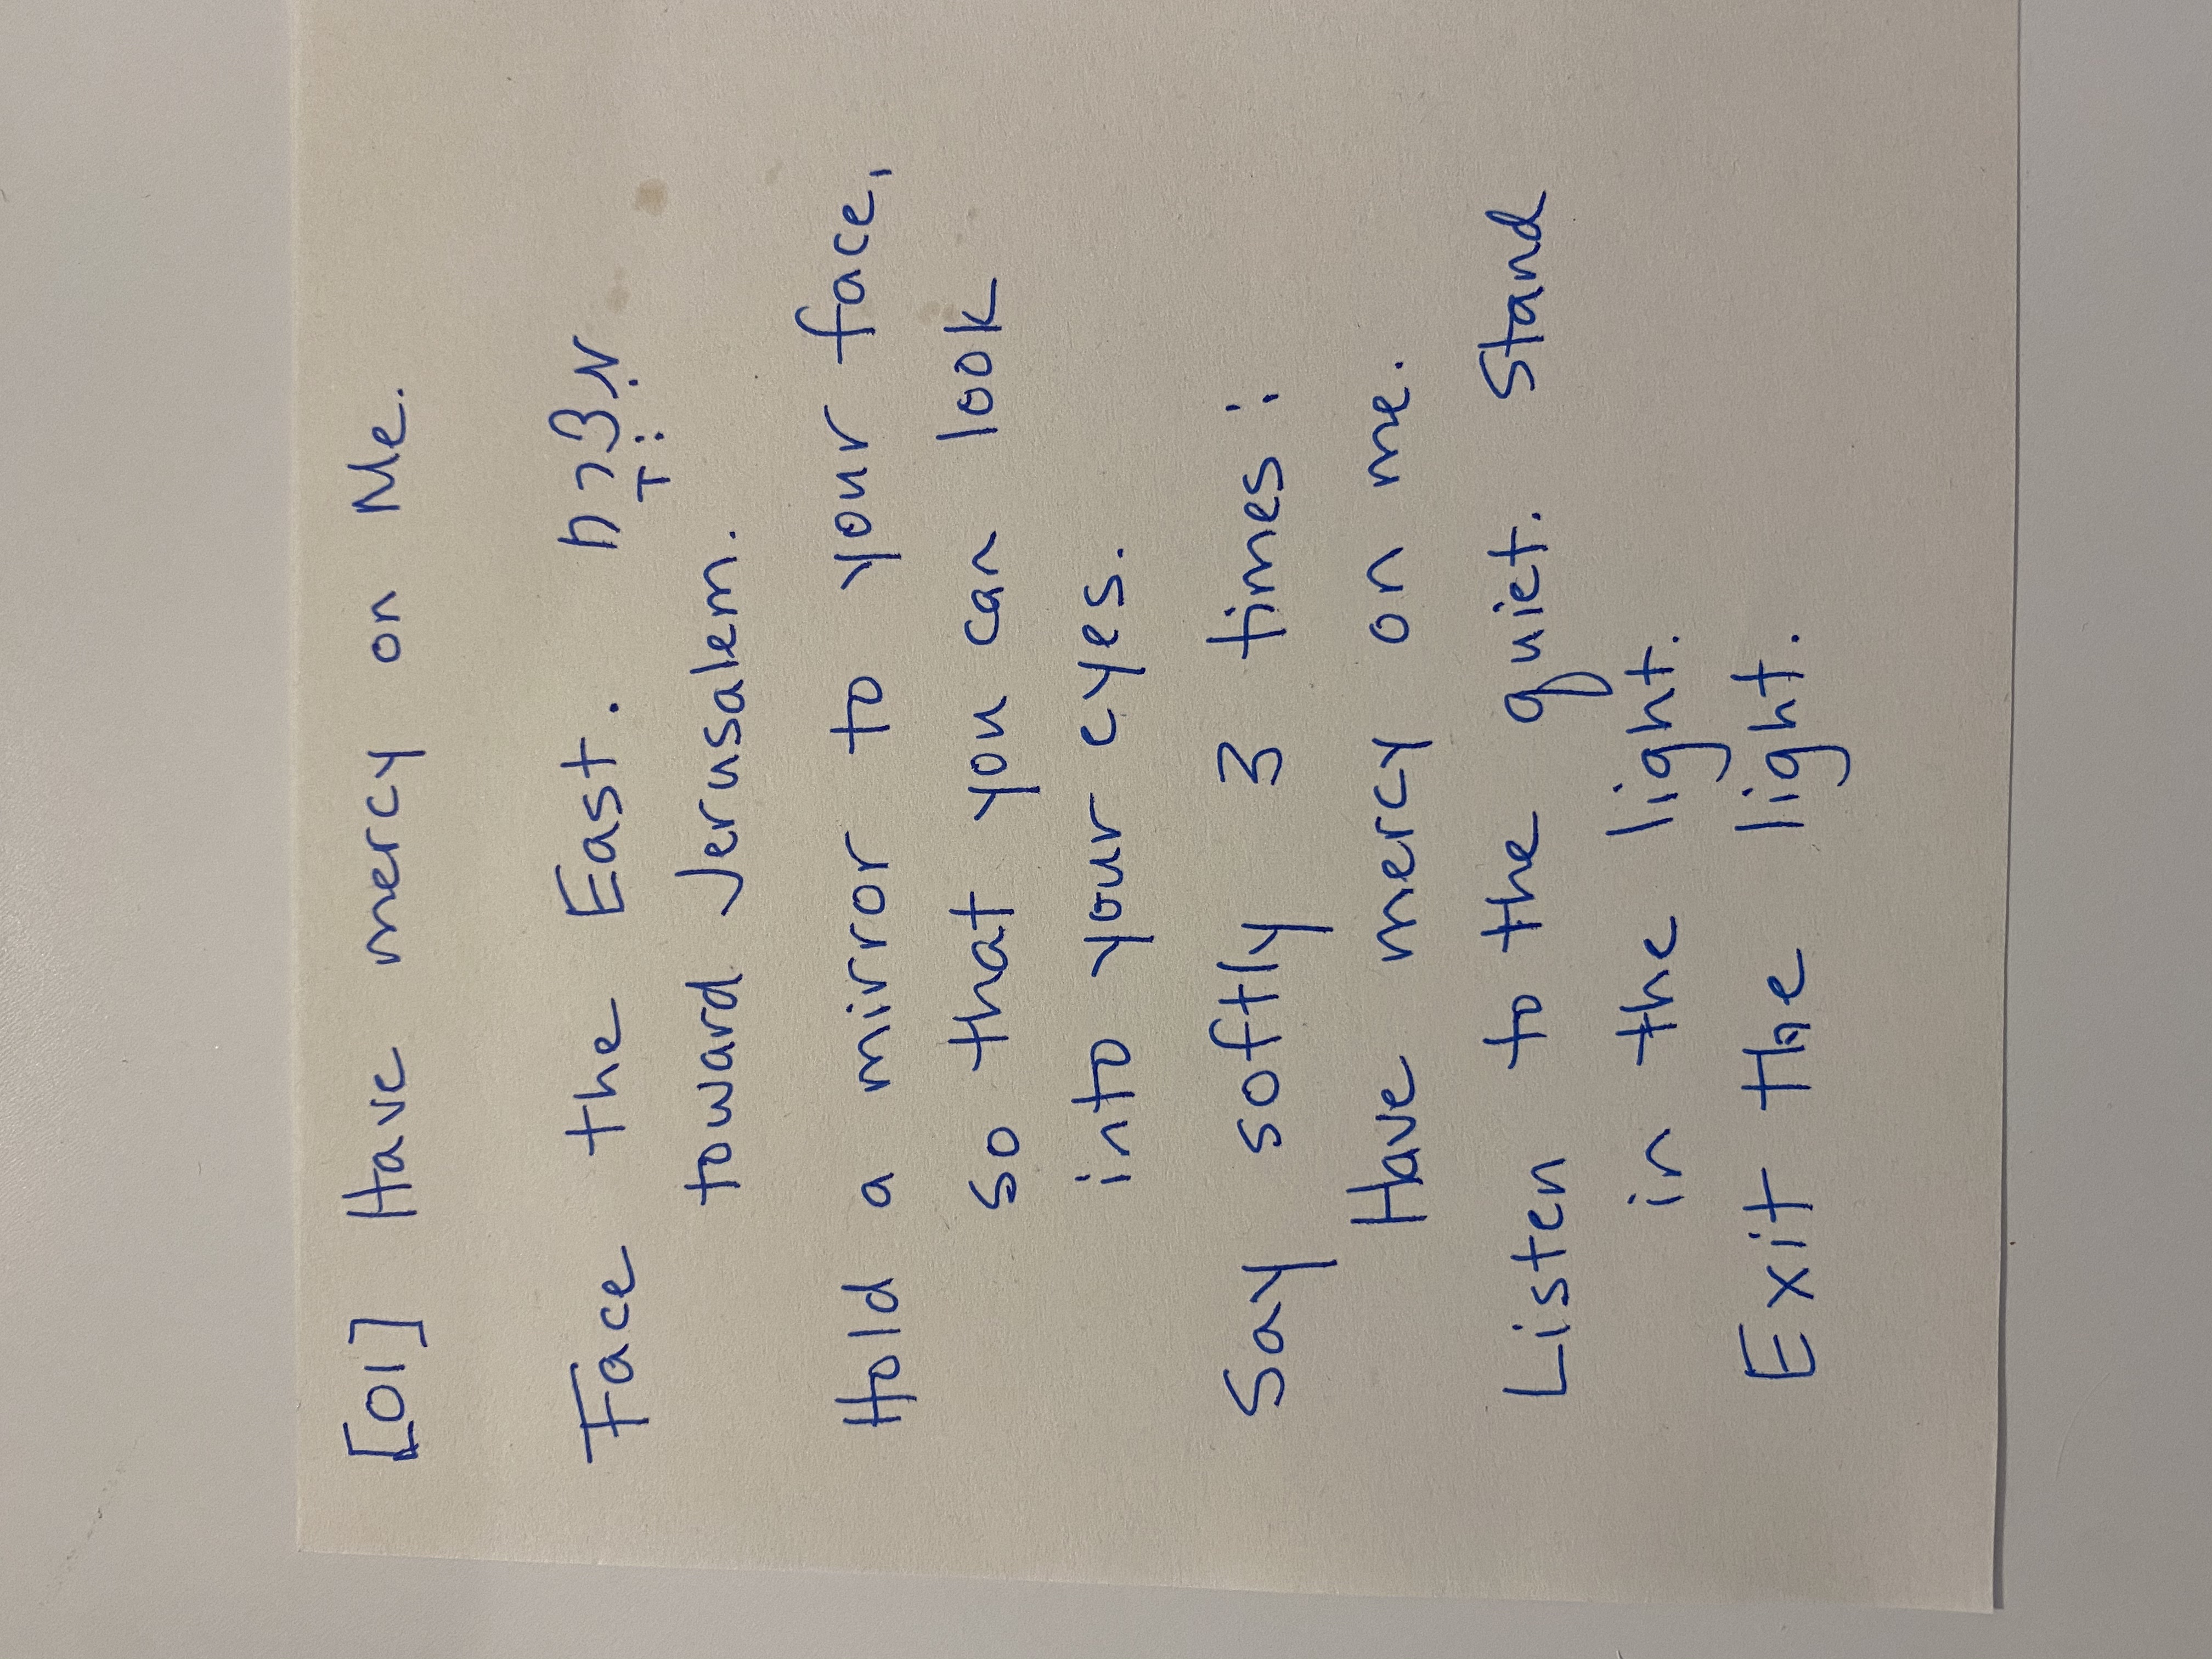 [01] Have mercy on Me.
Face the East. מִזְרָח
toward Jerusalem.
Hold a mirror to your face,
so that you can look
into your eyes.
Say softly 3 times:
Have mercy on me.
Listen to the quiet. Stand
in the light.
Exit the light.